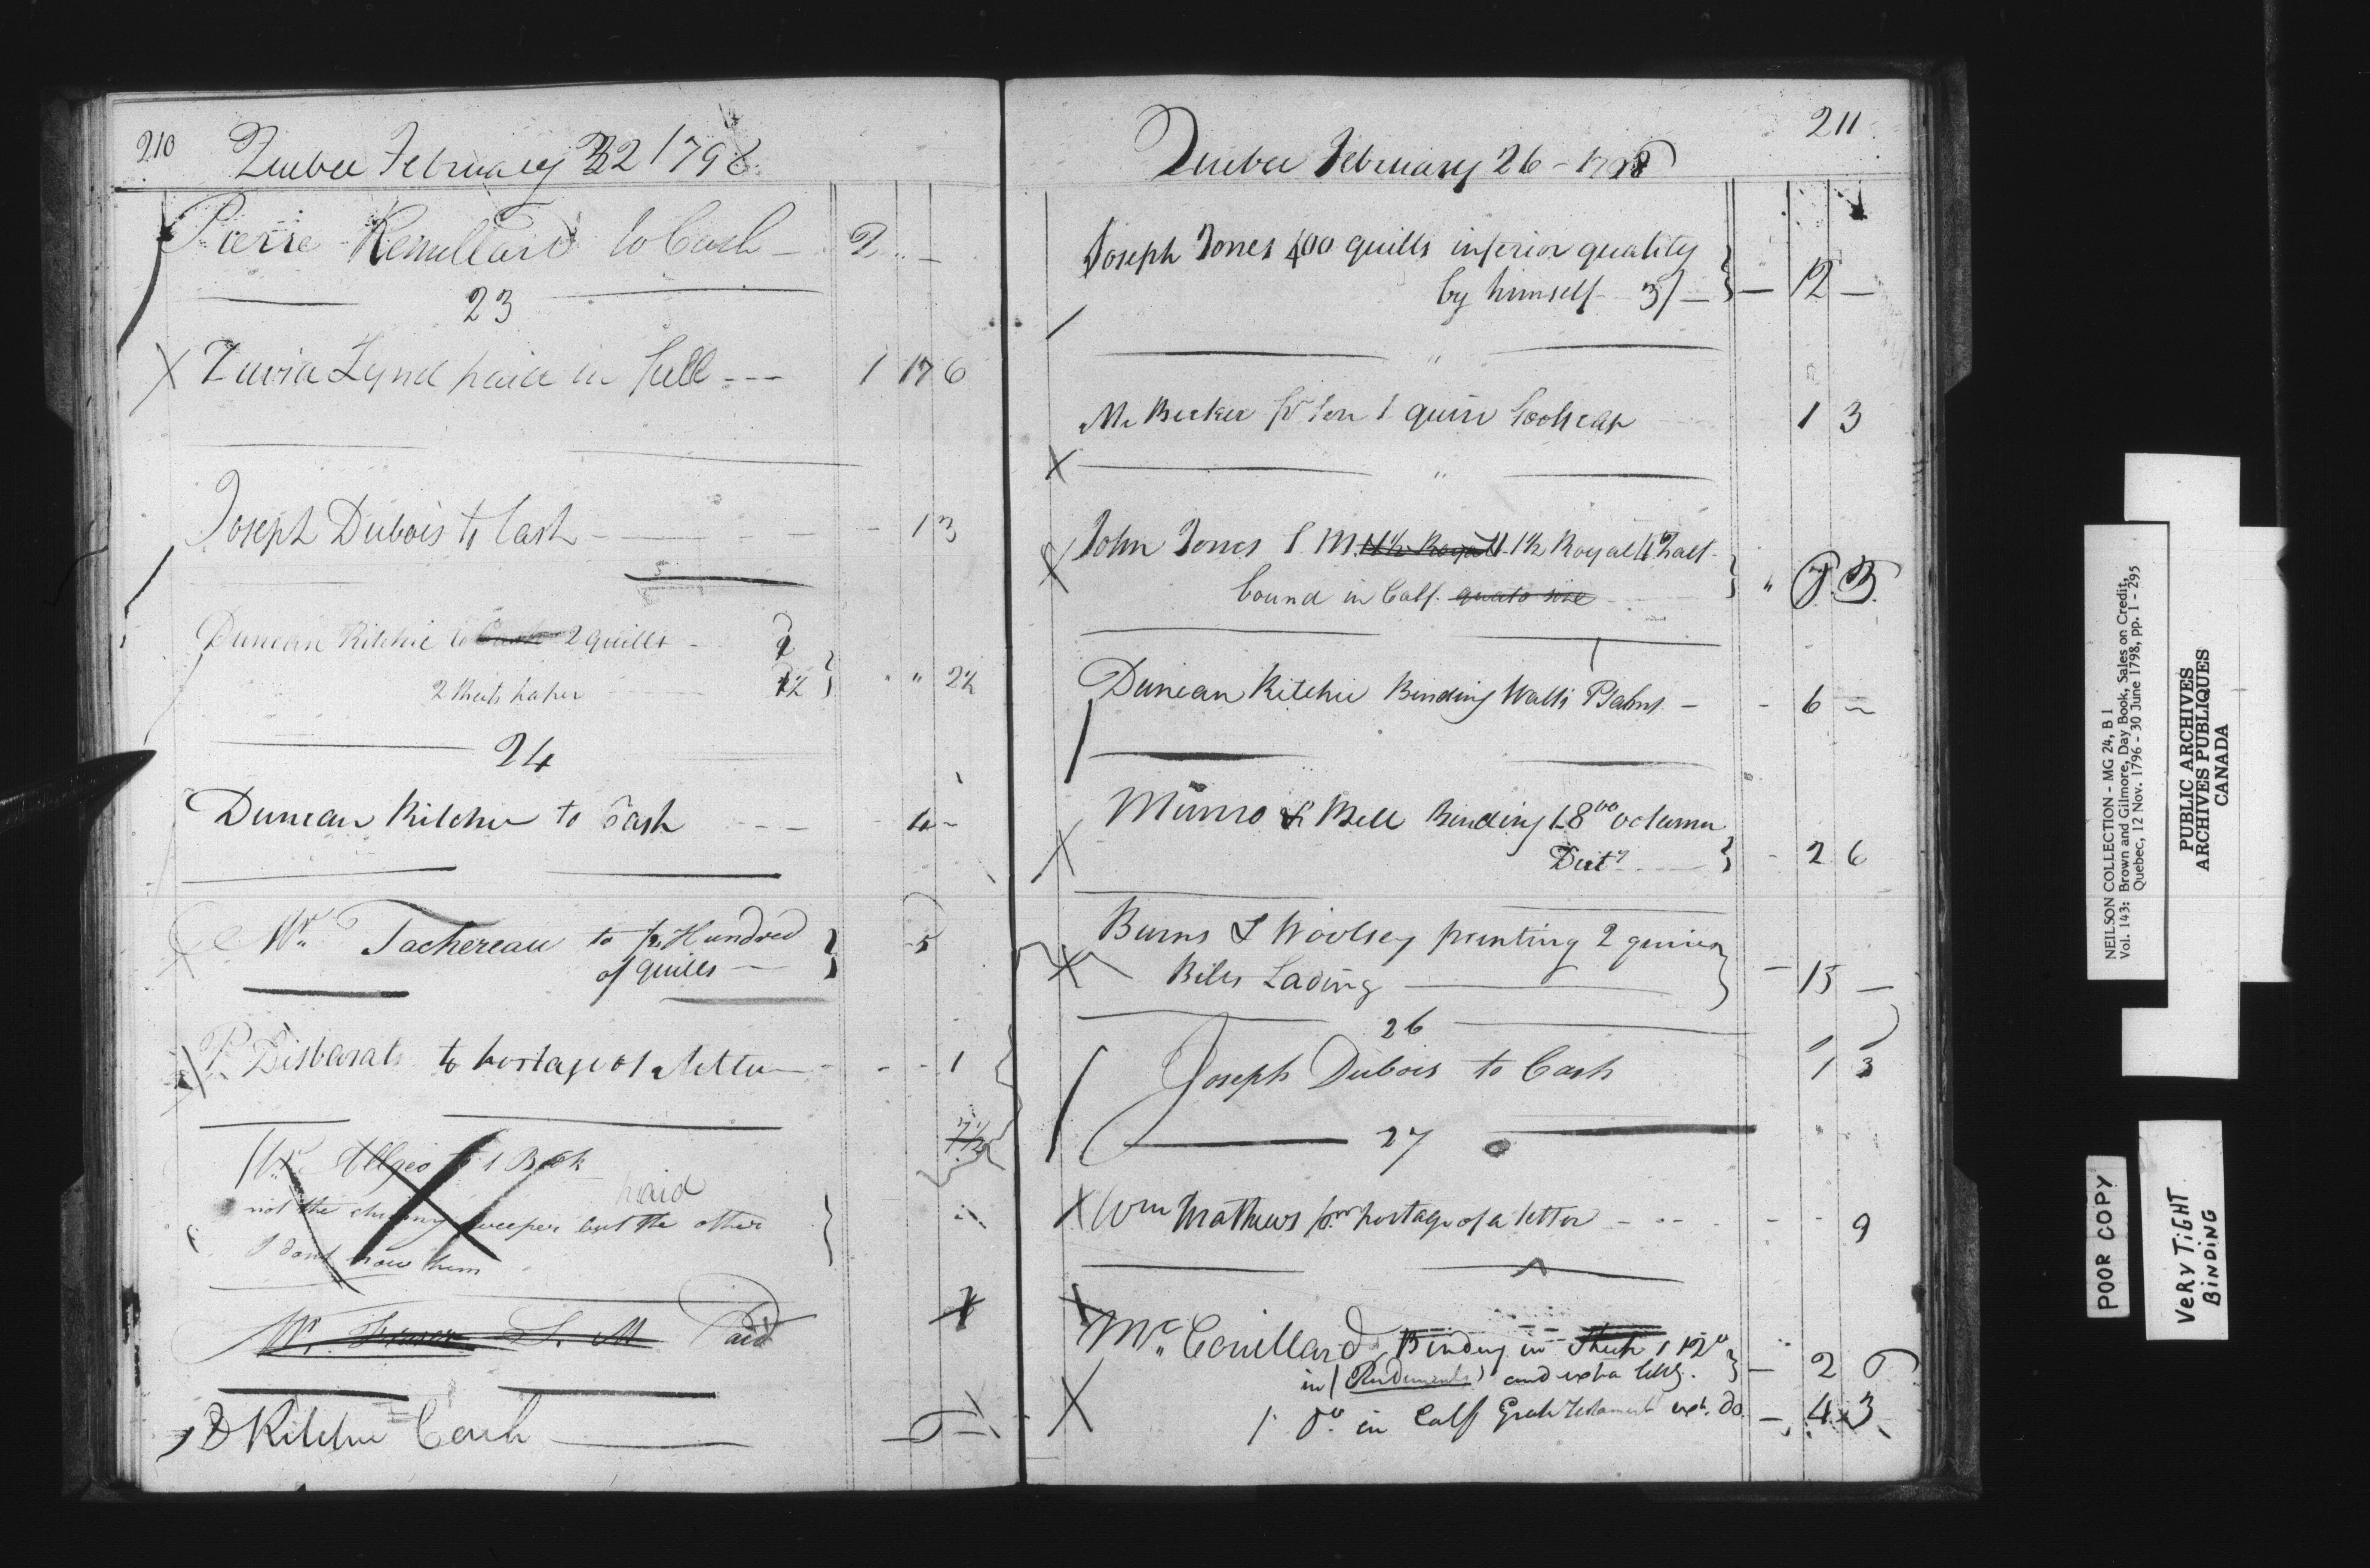 210
Quebec February 22 1798
Pierre Remillard to Cash — 2 .. —
23
X David Lynd paid in full --- 1 17 6
Joseph Dubois to Cash - 1 3
Duncan Ritchie to Cash 2 quills - 1
2 Sheets paper 1½ } " 2½
24
Duncan Ritchie to Cash --- 4 -
Mr. Tachereau to ½ Hundred
of quills — } 5
P. Desbarats to postage of a letter - - - 1
Mr. Allgeo to 1 Book 7½
paid
not the chimny sweeper but the other
I dont know him
Mr. Fraser S. M. Paid 1
D Ritchie Cash — 5 —
211
Quebec February 26 - 1798
Joseph Jones 400 quills inferior quality
by himself 3/ — } — 12 —
"
Mr Becker pr Son 1 quire foolscap 1 3
X "
X John Jones 1 M 1½ Royal 1½ Royal half
bound in Calf. quato size } "
Duncan Ritchie Binding Watts Psalms — - 6 —
Munro & Bell Binding 1 8vo volumn
X Dicty } - 2 6
Burns & Woolsey printing 2 quires
X Bills Lading } — 15 —
26
Joseph Dubois to Cash 1 3
27
X Wm Mathews for postage of a letter - - - 9
X Mr. Couillard, Binding in Sheep 1 12o
in (Rudiments) and extra } — 2 6
X 1 8o. in Calf Greek Testament ext. do. — 4 3
NEILSON COLLECTION - MG 24, B 1
Vol. 143: Brown and Gilmore, Day Book, Sales on Credit,
Quebec, 12 Nov. 1796 - 30 June 1798, pp. 1 - 295
PUBLIC ARCHIVES
ARCHIVES PUBLIQUES
CANADA
POOR COPY
VERY TIGHT
BINDING